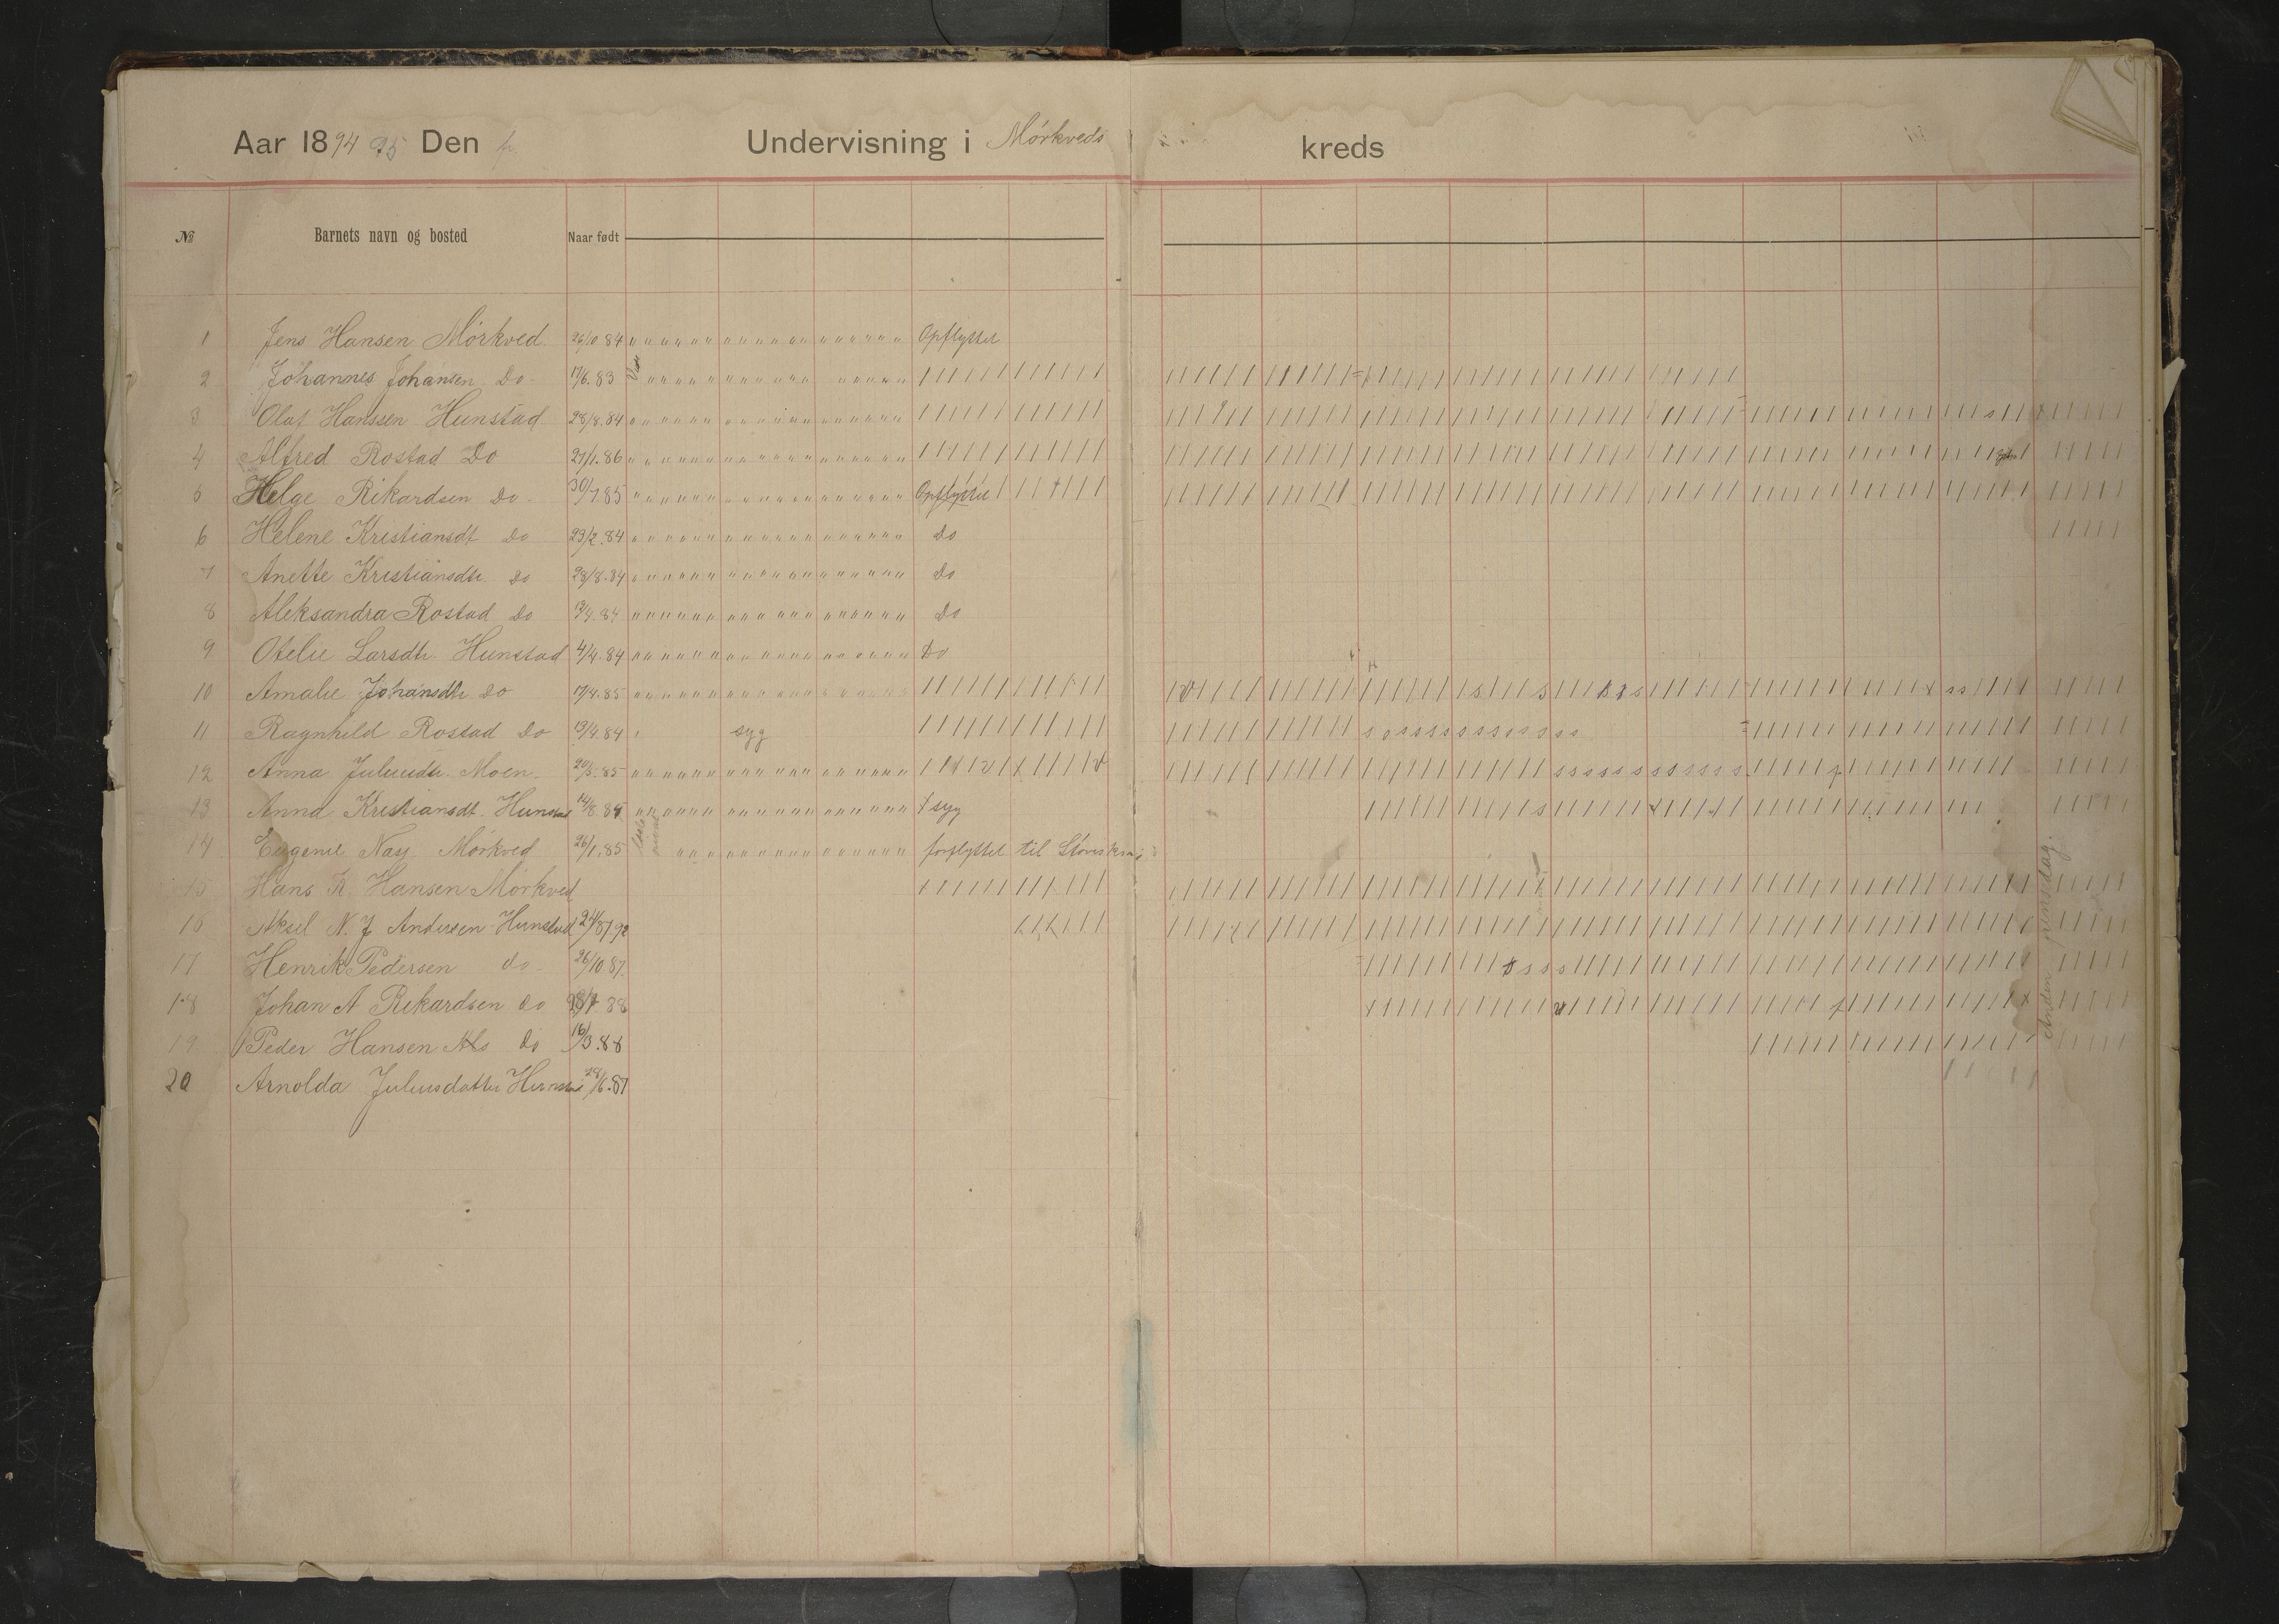 Aar 1894 95 Den Undervisning i Mörkveds kreds
№ Barnets navn og bosted Naar født
1 Jens Hansen Mörkved 26/10 84 Opflyttet
2 Johannes Johansen Do 17/6.83
3 Olaf Hanssen Hunstad 28/8.84
4 Alfred Rostad Do 21/1.86
5 Helge Rikardsen Do 30/7.85 Opflyttet
6 Helene Kristiansdt Do 29/2.84 Do
7 Anette Kristiansdtr Do 28/8.84 Do
8 Aleksandra Rostad Do 13/4.84 Do
9 Otelie Larsdtr Hunstad 4/4.84 Do
10 Amalie Johansdtr Do 17/4.85
11 Ragnhild Rostad Do 13/4.84 syg
12 Anna Juliusdtr Moen 20/3.85
13 Anna Kristiansdt. Hunstad 14/8.84 syg
14 Eugenie Nay Mörkved 26/1.85 forflyttet til
15 Hans K. Hansen Mörkved
16 Aksel N. J Andersen Hunstad 24/8
17 Henrik Pedersen do 26/10.87.
18 Johan A Rikardsen Do 88
19 Peder Hansen Do 16/3.88
20 Arnolda Juliusdatter Hunstad 28/6.87
Anden pinsdag.